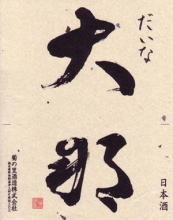 だいな
大那
日本酒
菊の里酒造株式会社